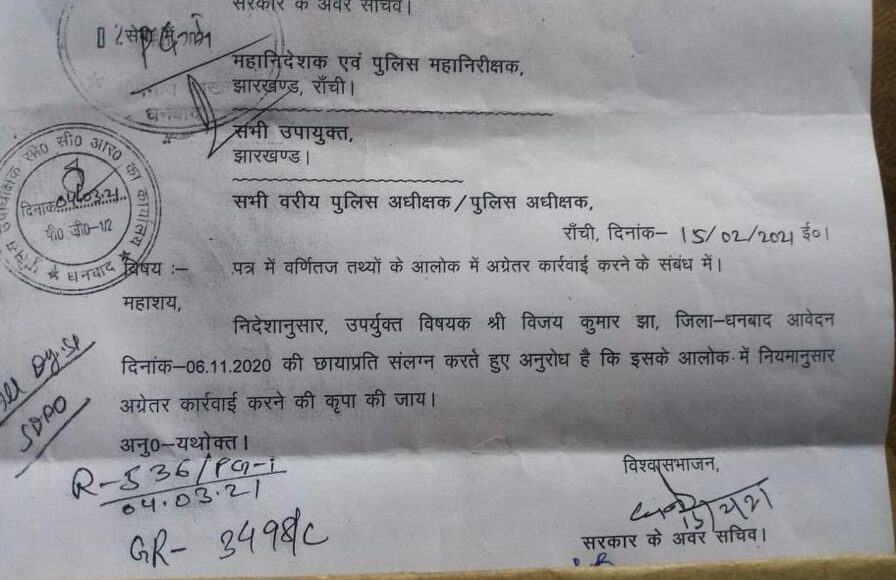 सरकार के अवर सचिव।
महानिदेशक एवं पुलिस महानिरीक्षक,
झारखण्ड, राँची।
धनबाद
सभी उपायुक्त,
झारखण्ड।
सभी वरीय पुलिस अधीक्षक/पुलिस अधीक्षक,
राँची, दिनांक– 15/02/2021 ई०।
सी० आर० का कार्यालय
दिनांक 04/03.21
पी० जी०-1/2
★ धनबाद ★
विषय :– पत्र में वर्णितज तथ्यों के आलोक में अग्रेतर कार्रवाई करने के संबंध में।
महाशय,
निदेशानुसार, उपर्युक्त विषयक श्री विजय कुमार झा, जिला–धनबाद आवेदन
दिनांक–06.11.2020 की छायाप्रति संलग्न करते हुए अनुरोध है कि इसके आलोक में नियमानुसार
अग्रेतर कार्रवाई करने की कृपा की जाय।
अनु0–यथोक्त।
All Dy.SP
SDPO
R-536/PG-i
04.03.21
GR- 3498/C
विश्वासभाजन,
15/2/21
सरकार के अवर सचिव।